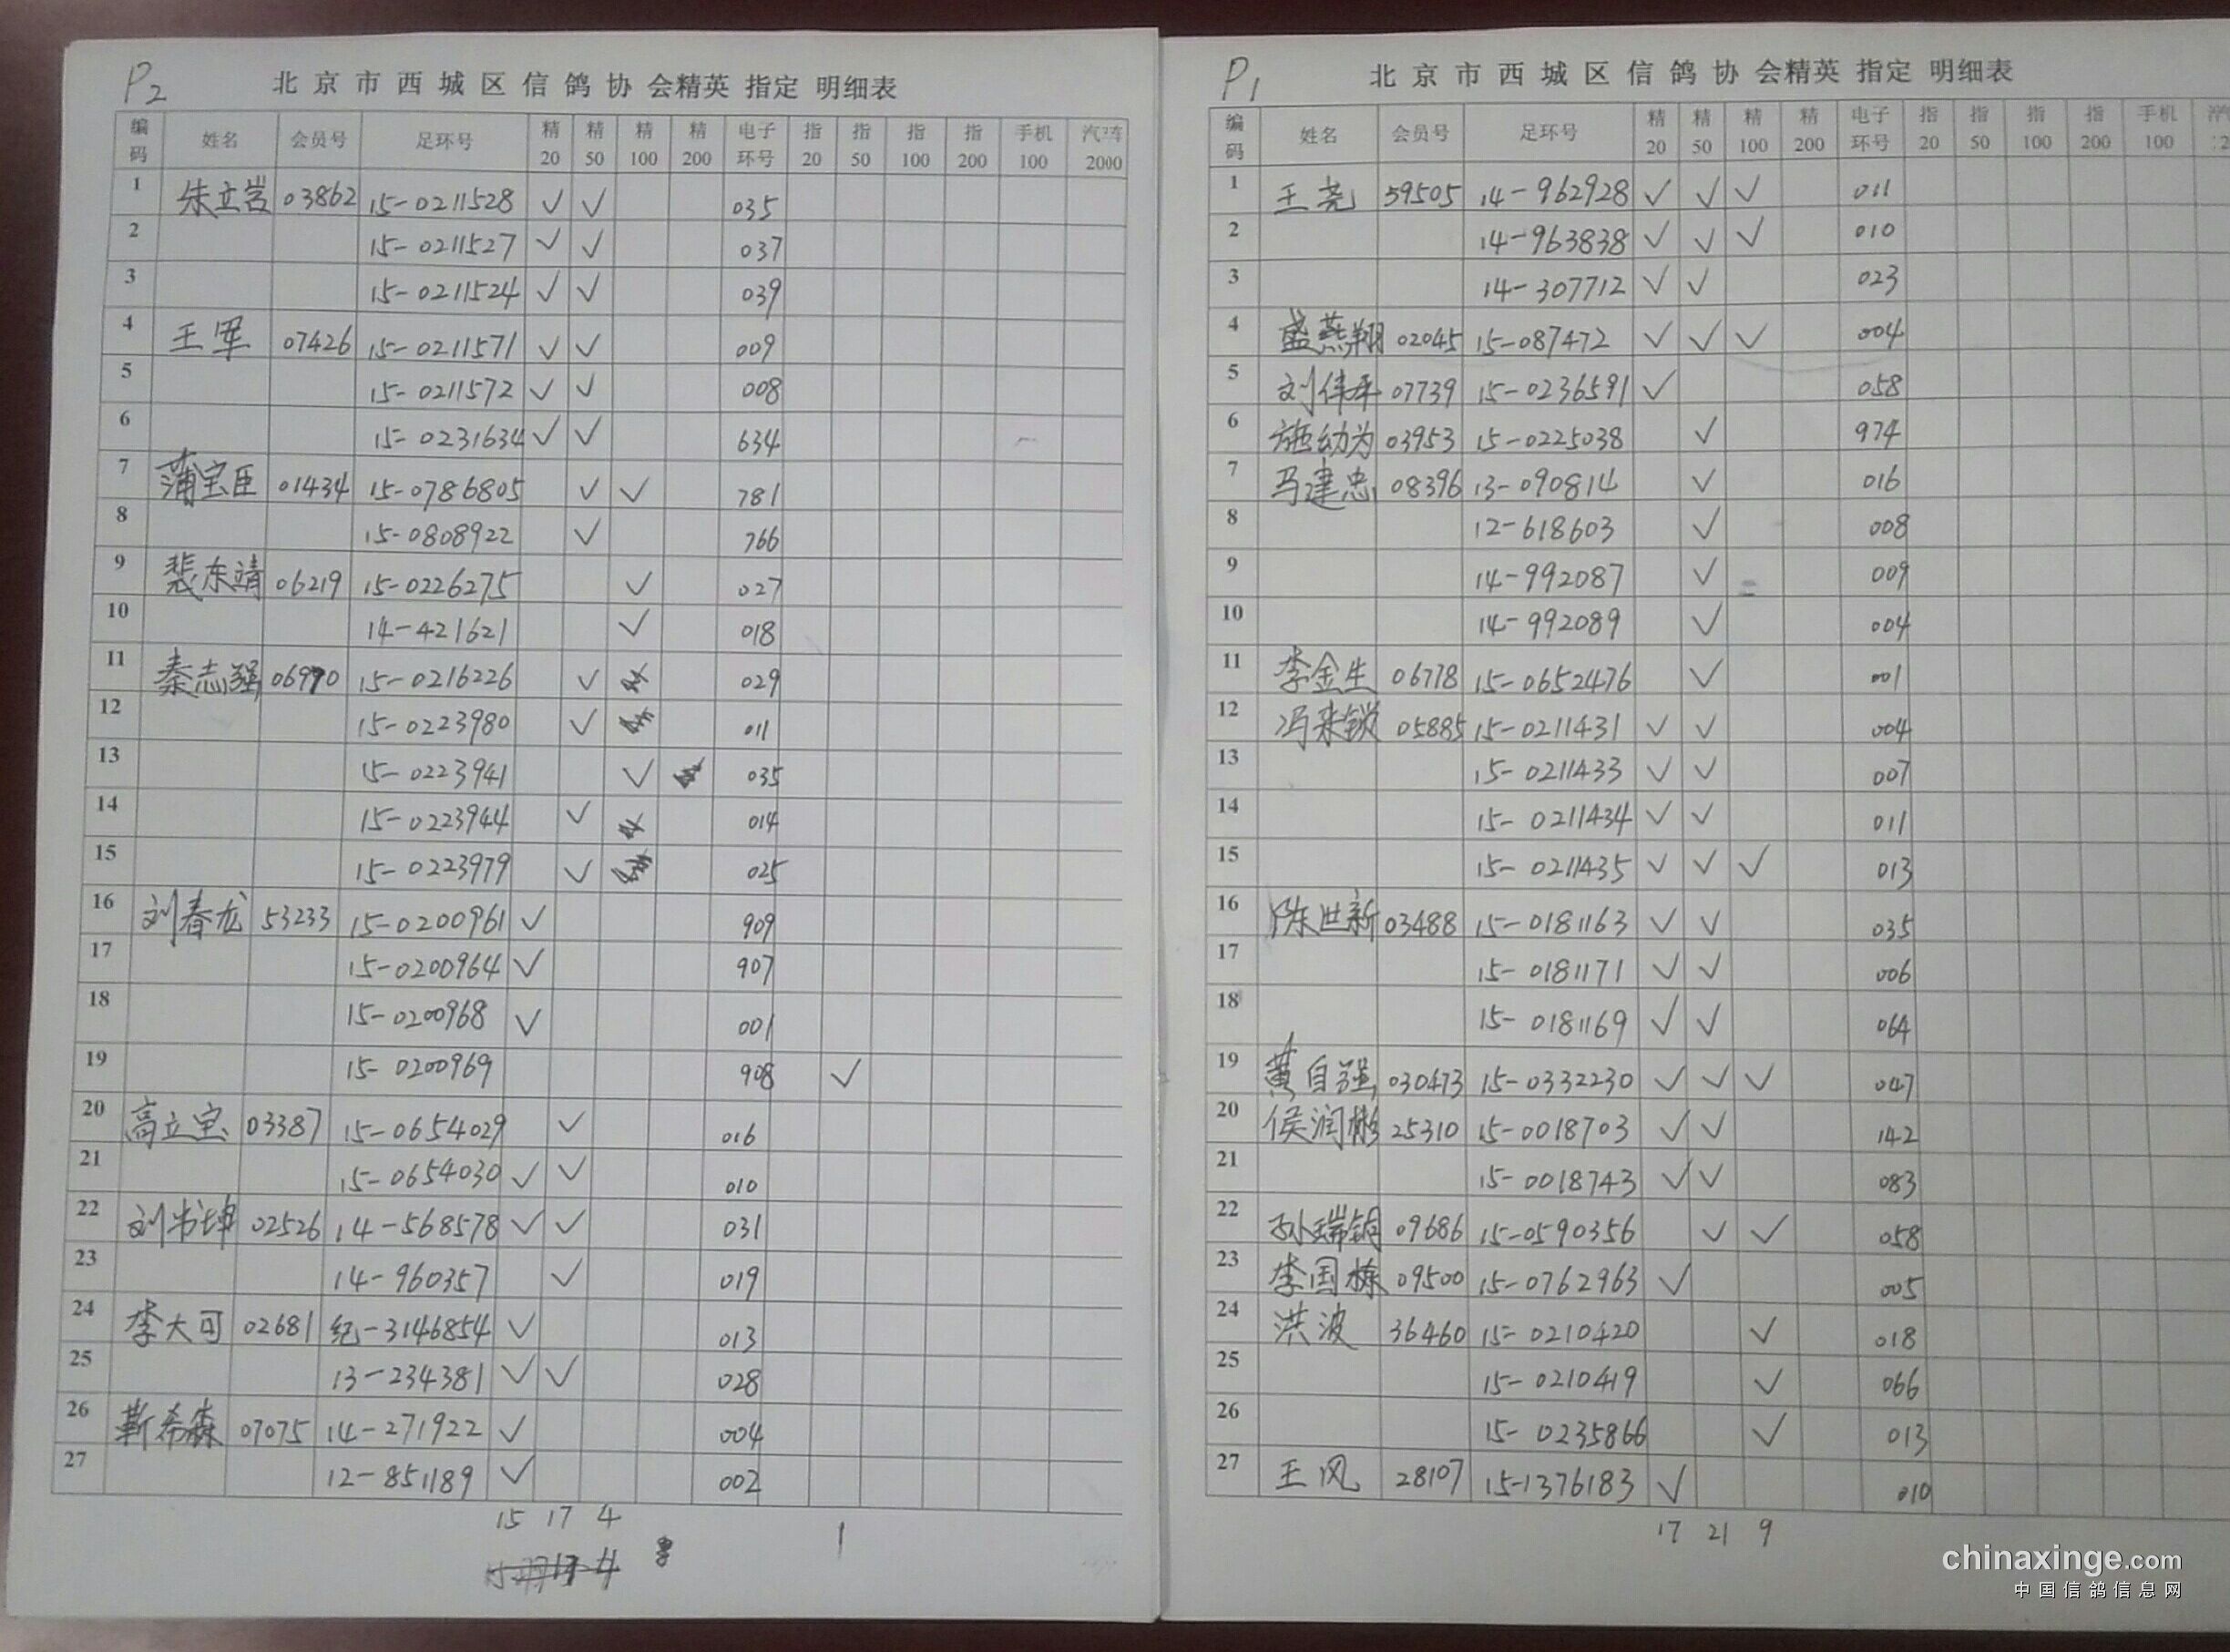 P2
北京市西城区信鸽协会精英 指定 明细表
编码 姓名 会员号 足环号 精20 精50 精100 精200 电子环号 指20 指50 指100 指200 手机100 汽车2000
1 朱立岩 03862 15-0211528 √ √ 035
2 15-0211527 √ √ 037
3 15-0211524 √ √ 039
4 王军 07426 15-0211571 √ √ 009
5 15-0211572 √ √ 008
6 15-0231634 √ √ 634
7 蒲宝臣 01434 15-0786805 √ √ 781
8 15-0808922 √ 766
9 裴东靖 06219 15-0226275 √ 027
10 14-421621 √ 018
11 秦志强 06970 15-0216226 √ 029
12 15-0223980 √ 011
13 15-0223941 √ 035
14 15-0223944 √ 014
15 15-0223979 √ 025
16 刘春龙 53233 15-0200961 √ 909
17 15-0200964 √ 907
18 15-0200968 √ 001
19 15-0200969 908 √
20 高立宝 03387 15-0654029 √ 016
21 15-0654030 √ √ 010
22 刘书坤 02526 14-568578 √ √ 031
23 14-960357 √ 019
24 李大可 02681 纪-3146854 √ 013
25 13-234381 √ √ 028
26 靳希森 07075 14-271922 √ 004
27 12-851189 √ 002
15 17 4 1
P1
北京市西城区信鸽协会精英 指定 明细表
编码 姓名 会员号 足环号 精20 精50 精100 精200 电子环号 指20 指50 指100 指200 手机100
1 王尧 59505 14-962928 √ √ √ 011
2 14-963838 √ √ √ 010
3 14-307712 √ √ 023
4 盛燕翔 02045 15-087472 √ √ √ 004
5 刘伟平 07739 15-0236591 √ 058
6 施幼为 03953 15-0225038 √ 974
7 马建忠 08396 13-090814 √ 016
8 12-618603 √ 008
9 14-992087 √ 009
10 14-992089 √ 004
11 李金生 06778 15-0652476 √ 001
12 冯来锁 05885 15-0211431 √ √ 004
13 15-0211433 √ √ 007
14 15-0211434 √ √ 011
15 15-0211435 √ √ √ 013
16 陈世新 03488 15-0181163 √ √ 035
17 15-0181171 √ √ 006
18 15-0181169 √ √ 064
19 黄自强 030473 15-0332230 √ √ √ 047
20 侯润彬 25310 15-0018703 √ √ 142
21 15-0018743 √ √ 083
22 孙瑞钢 09686 15-0590356 √ √ 058
23 李国栋 09500 15-0762963 √ 005
24 洪波 36460 15-0210420 √ 018
25 15-0210419 √ 066
26 15-0235866 √ 013
27 王风 28107 15-1376183 √ 010
17 21 9
chinaxinge.com
中国信鸽信息网